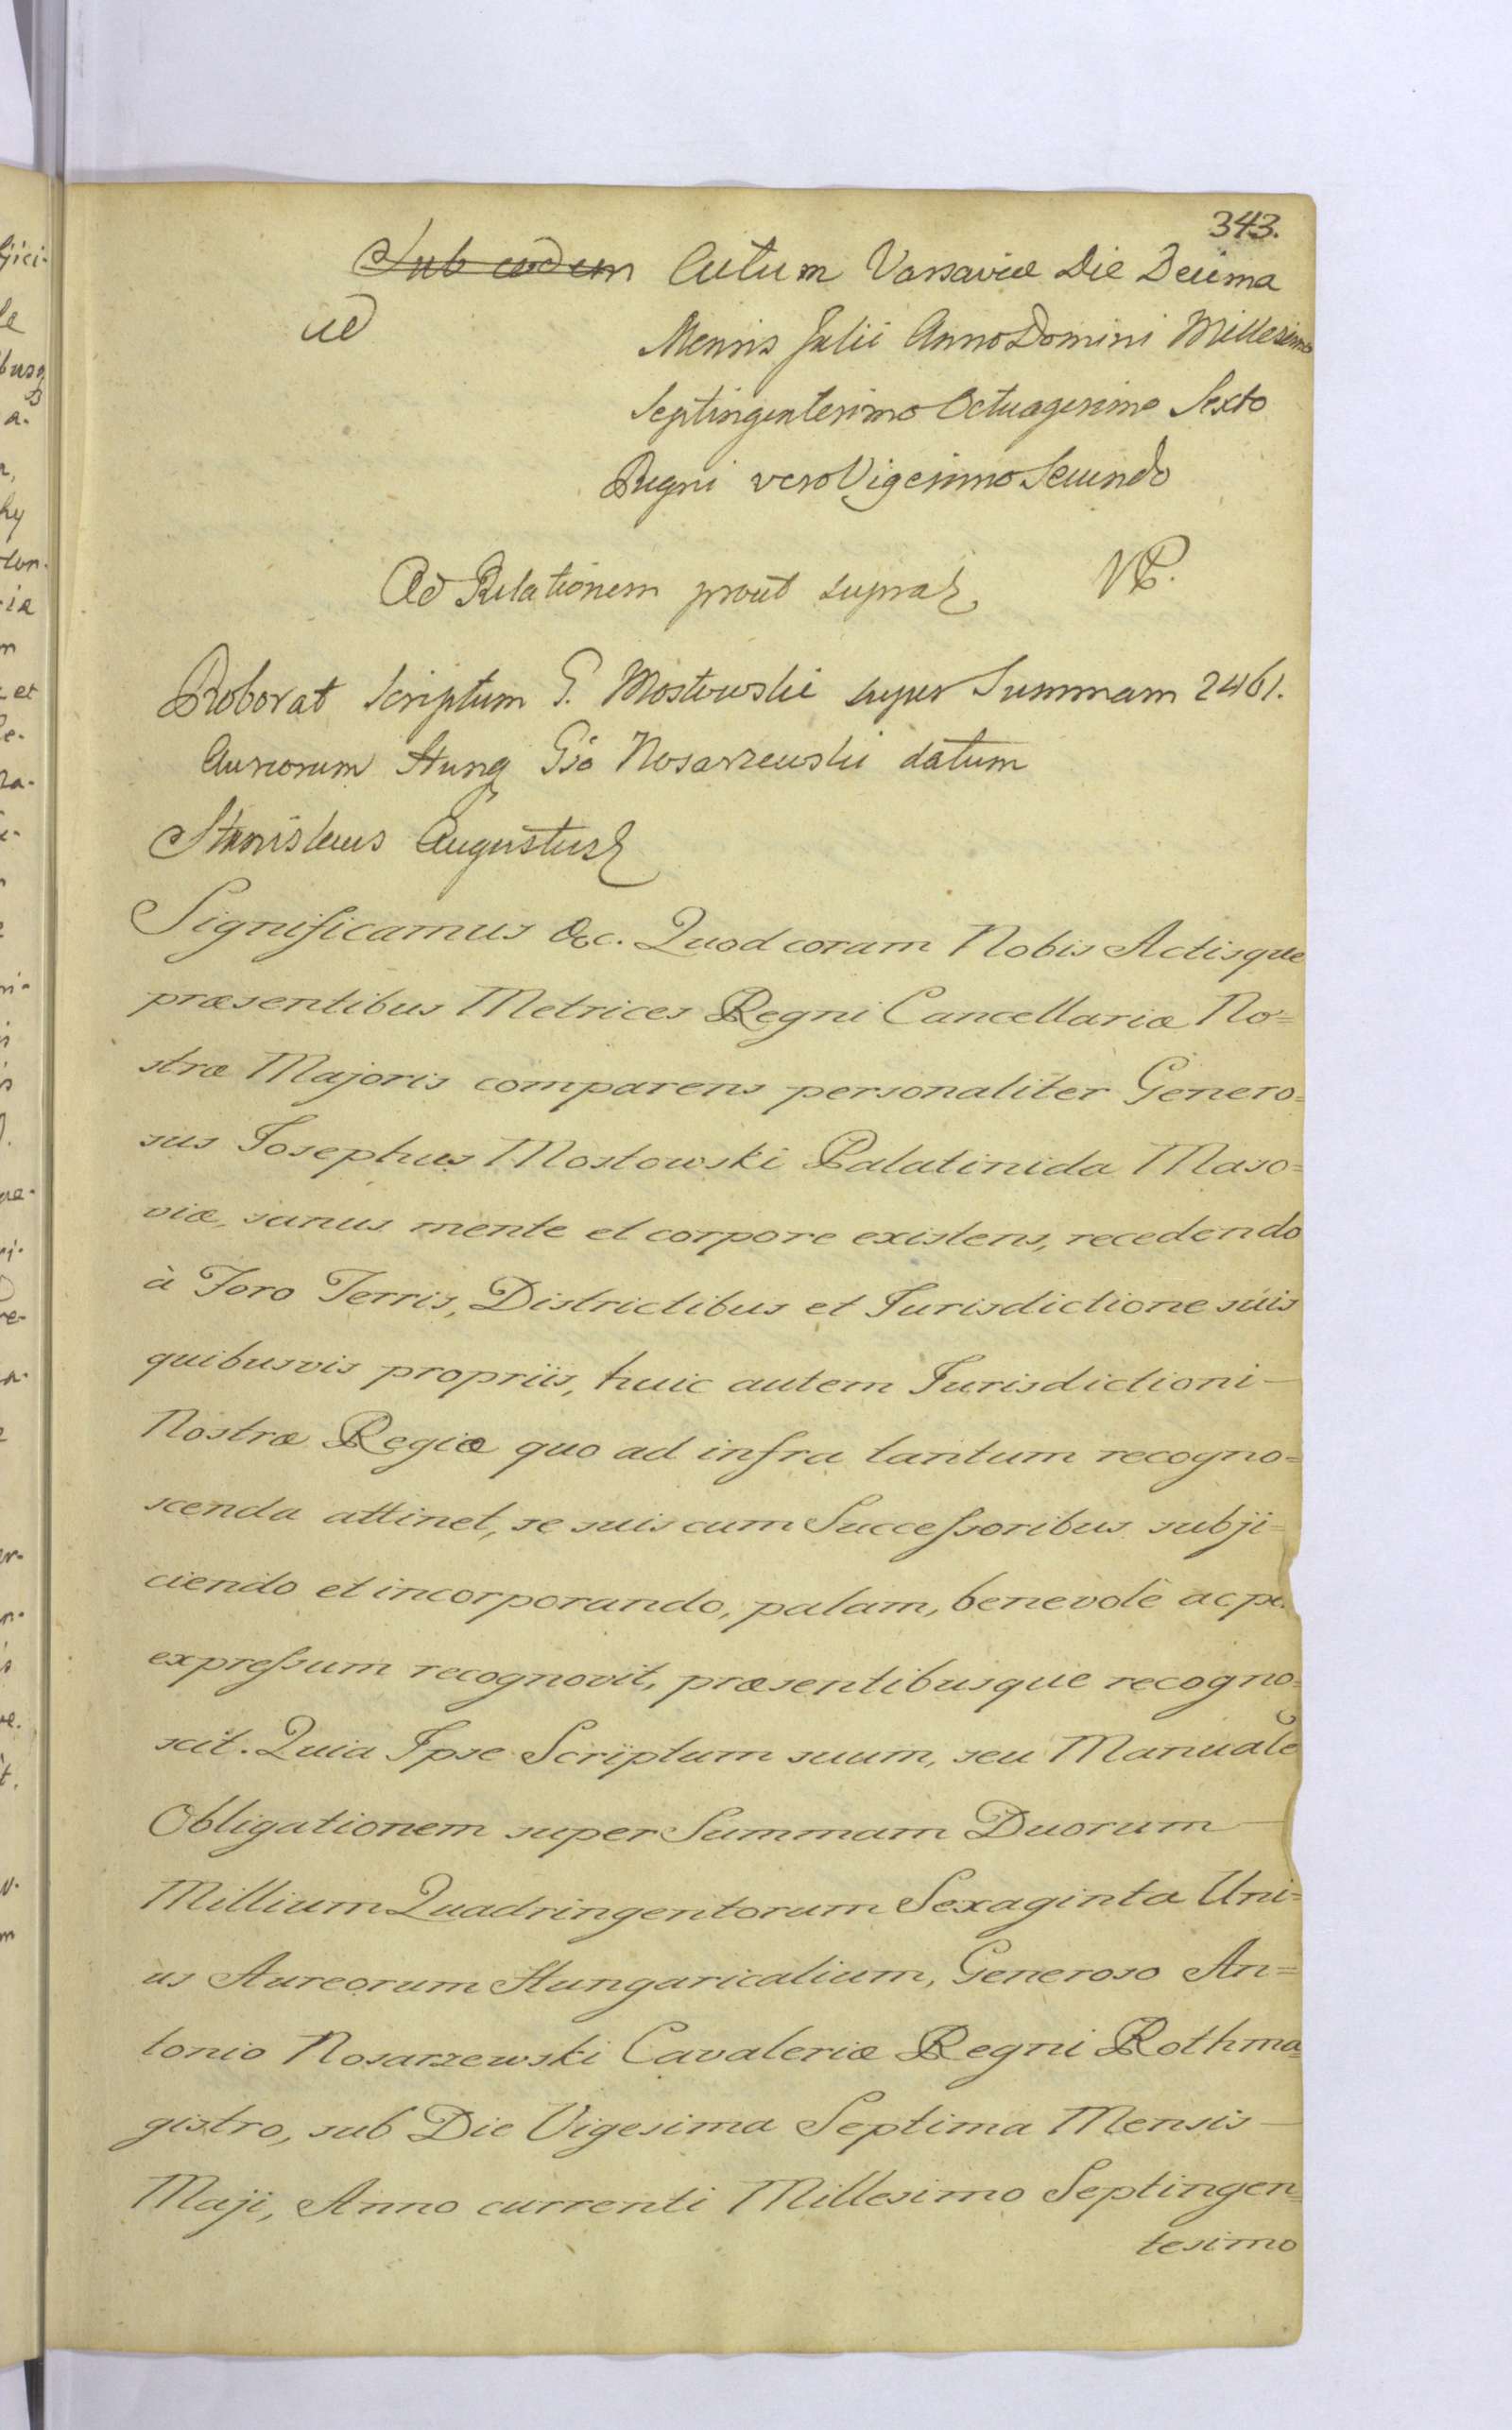 343.
Sub eodem Actum Varsaviæ Die Decima
Mensis Julii Anno Domini Millesimo
Septingentesimo Octuagesimo Sexto
Regni vero Vigesimo Secundo
Ad Relationem prout supra
Roborat Scriptum G. Mostowski super Summam 2461.
Aureorum Hung Gso Nosarzewski datum
Stanislaus Augustus
Significamus &c. Quod coram Nobis Actisque
præsentibus Metrices Regni Cancellariæ No=
stræ Majoris comparens personaliter Genero=
sus Josephus Mostowski Palatinida Maso=
viæ, sanus mente et corpore existens, recedendo
à Foro Terris, Districtibus et Jurisdictione suis
quibusvis propriis, huic autem Jurisdictioni —
Nostræ Regiæ quo ad infra tantum recogno=
scenda attinet, se suis cum Successoribus subji=
ciendo et incorporando, palam, benevolè ac pe
expressum recognovit, præsentibusque recogno=
scit. Quia Ipse Scriptum suum, seu Manuale
Obligationem super Summam Duorum —
Millium Quadringentorum Sexaginta Uni=
us Aureorum Hungaricalium, Generoso An=
tonio Nosarzewski Cavaleriæ Regni Rothma=
gistro, sub Die Vigesima Septima Mensis —
Maji, Anno currenti Millesimo Septingen=
tesimo